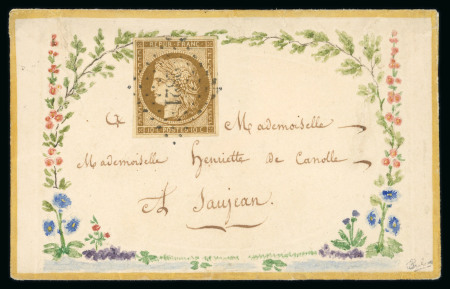 REPUB. FRANC.
10 c. POSTES 10 c.
A Mademoiselle
Mademoiselle Henriette de Canolle
A Saujean.